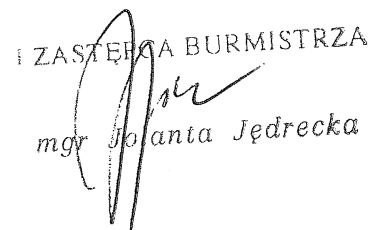 I ZASTĘPCA BURMISTRZA
mgr Jolanta Jędrecka